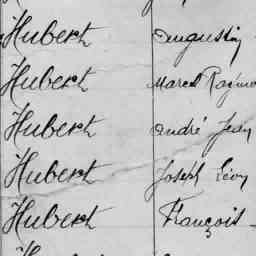 Hubert Augustin
Hubert Marcel Raymo
Hubert André Jean
Hubert Joseph Léon
Hubert François